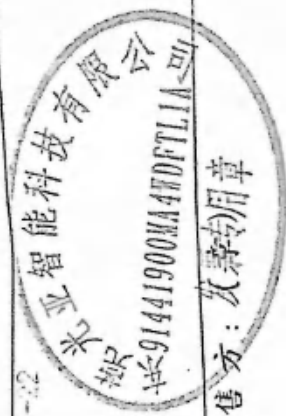 东莞光亚智能科技有限公司
91441900MA4WDFTL1A
售方：发票专用章